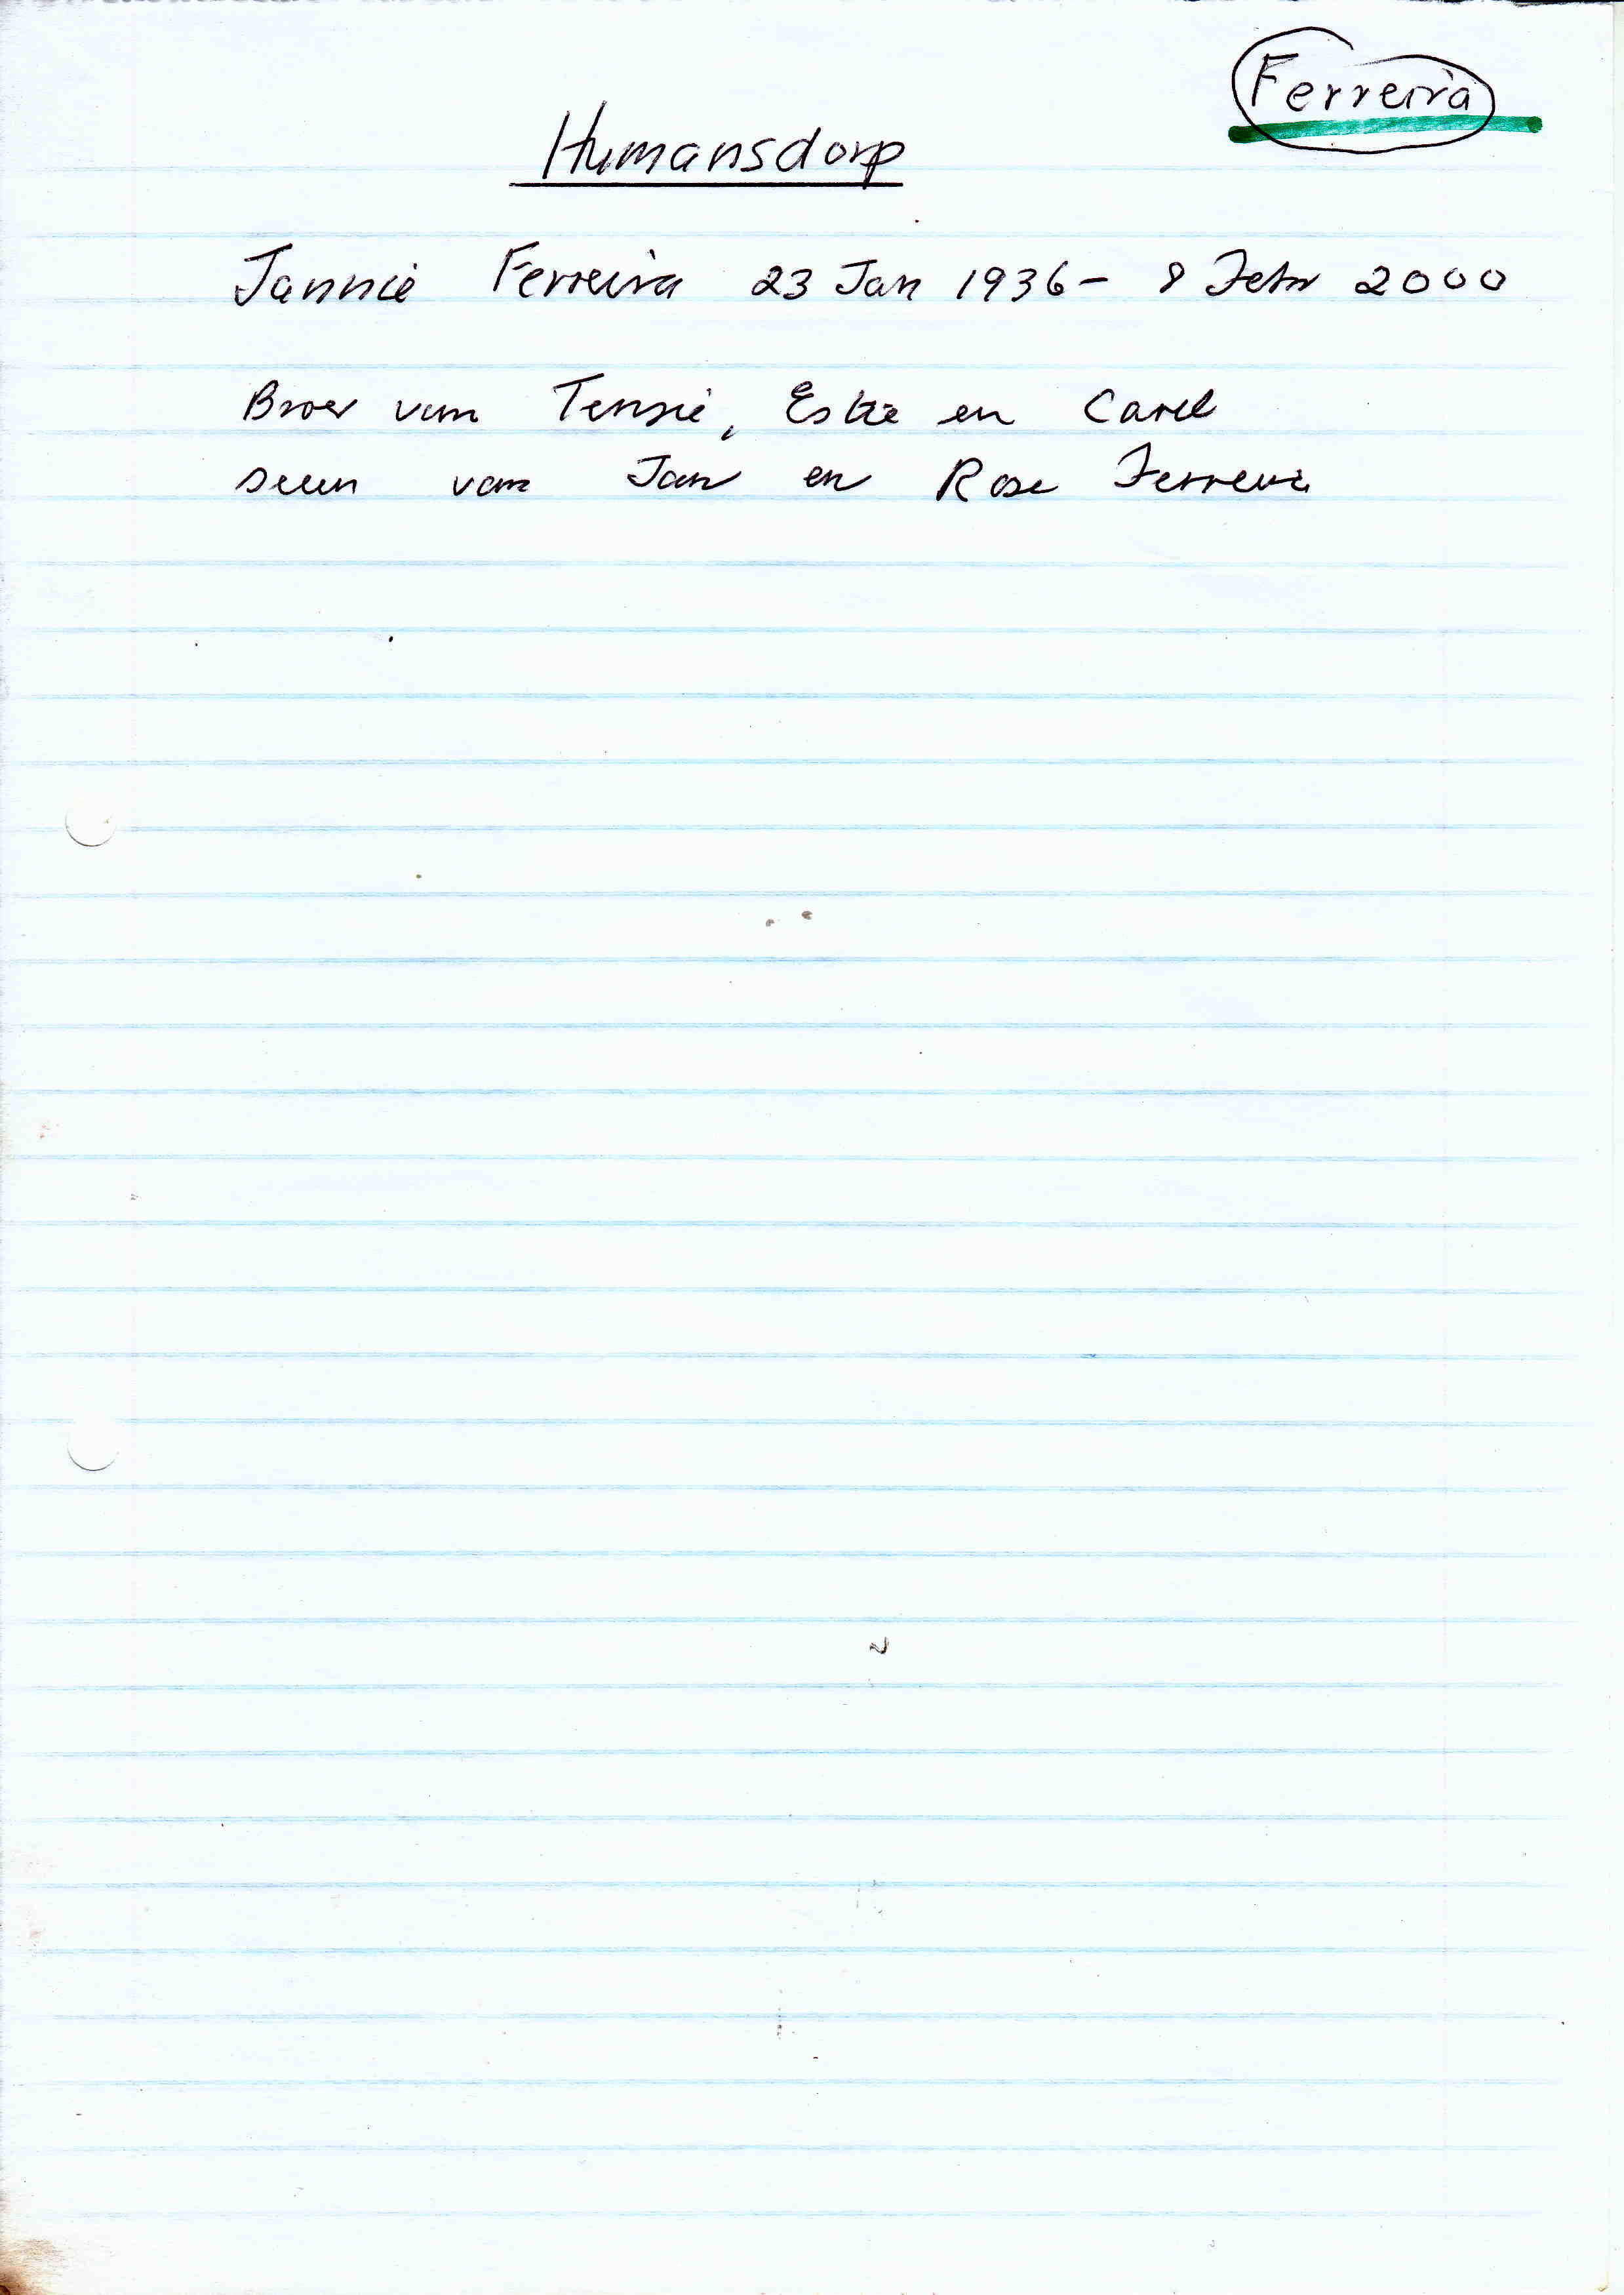 Ferreira
Humansdorp
Jannie Ferreira 23 Jan 1936 - 8 Febr 2000
Broer van Tensie, Estie en Carel
seun van Jan en Rose Ferreira